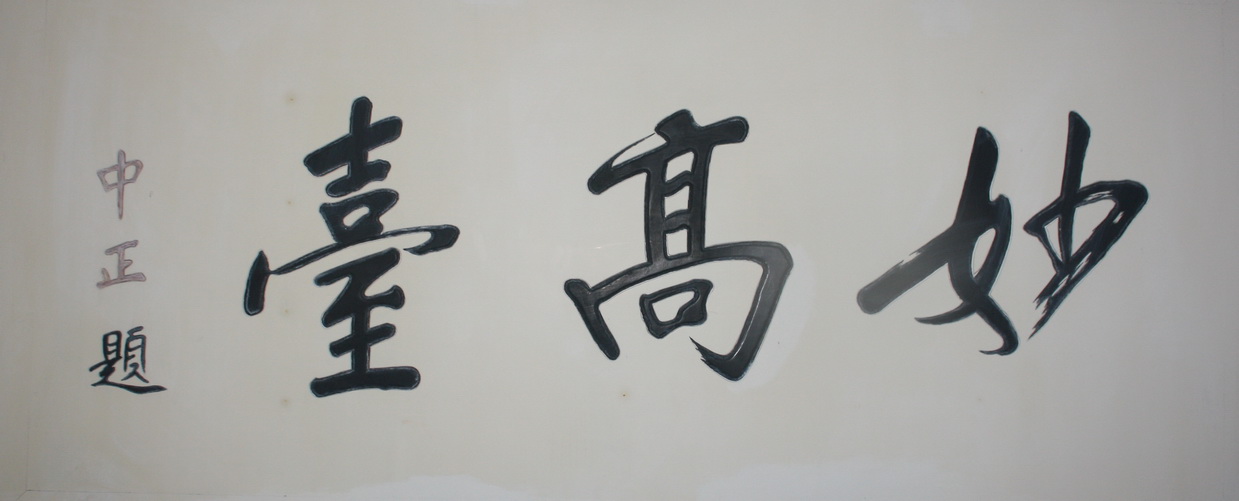 妙髙臺
中正題